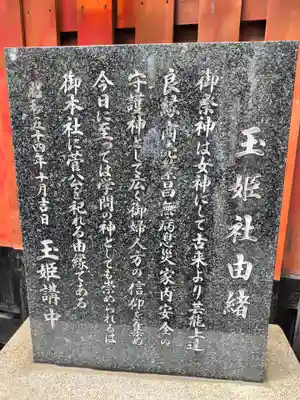 玉姫社由緒
御祭神は女神にして古来より芸能上達
良縁、商売繁昌、無病息災、家内安全の
守護神として広く御婦人方の信仰を集め
今日に至っては学問の神としても崇められるは
御本社に菅公を祀れる由縁である
昭和五十四年十月吉日
玉姫講中